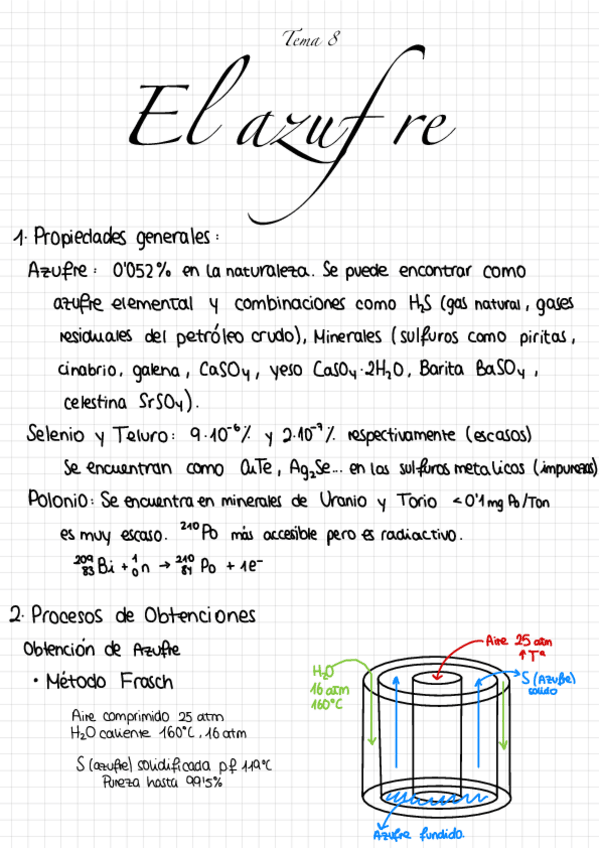 Tema 8
El azufre
1. Propiedades generales:
Azufre: 0'052% en la naturaleza. Se puede encontrar como
azufre elemental y combinaciones como H₂S (gas natural, gases
residuales del petróleo crudo), Minerales (sulfuros como piritas,
cinabrio, galena, CaSO₄, yeso CaSO₄·2H₂O, Barita BaSO₄,
celestina SrSO₄).
Selenio y Teluro: 9·10⁻⁶% y 2·10⁻⁷% respectivamente (escasos)
Se encuentran como CuTe, Ag₂Se... en los sulfuros metalicos (impurezas)
Polonio: Se encuentra en minerales de Uranio y Torio <0'1 mg Po/Ton
es muy escaso. ²¹⁰Po más accesible pero es radiactivo.
²⁰⁹₈₃Bi + ¹₀n → ²¹⁰₈₄Po + 1e⁻
2. Procesos de Obtenciones
Obtención de Azufre
• Método Frasch
Aire comprimido 25 atm
H₂O caliente 160°C, 16 atm
S (azufre) solidificada pf 119°C
Pureza hasta 99'5%
Aire 25 atm
↑Tª
H₂O
16 atm
160°C
S (Azufre)
solido
Azufre fundido.